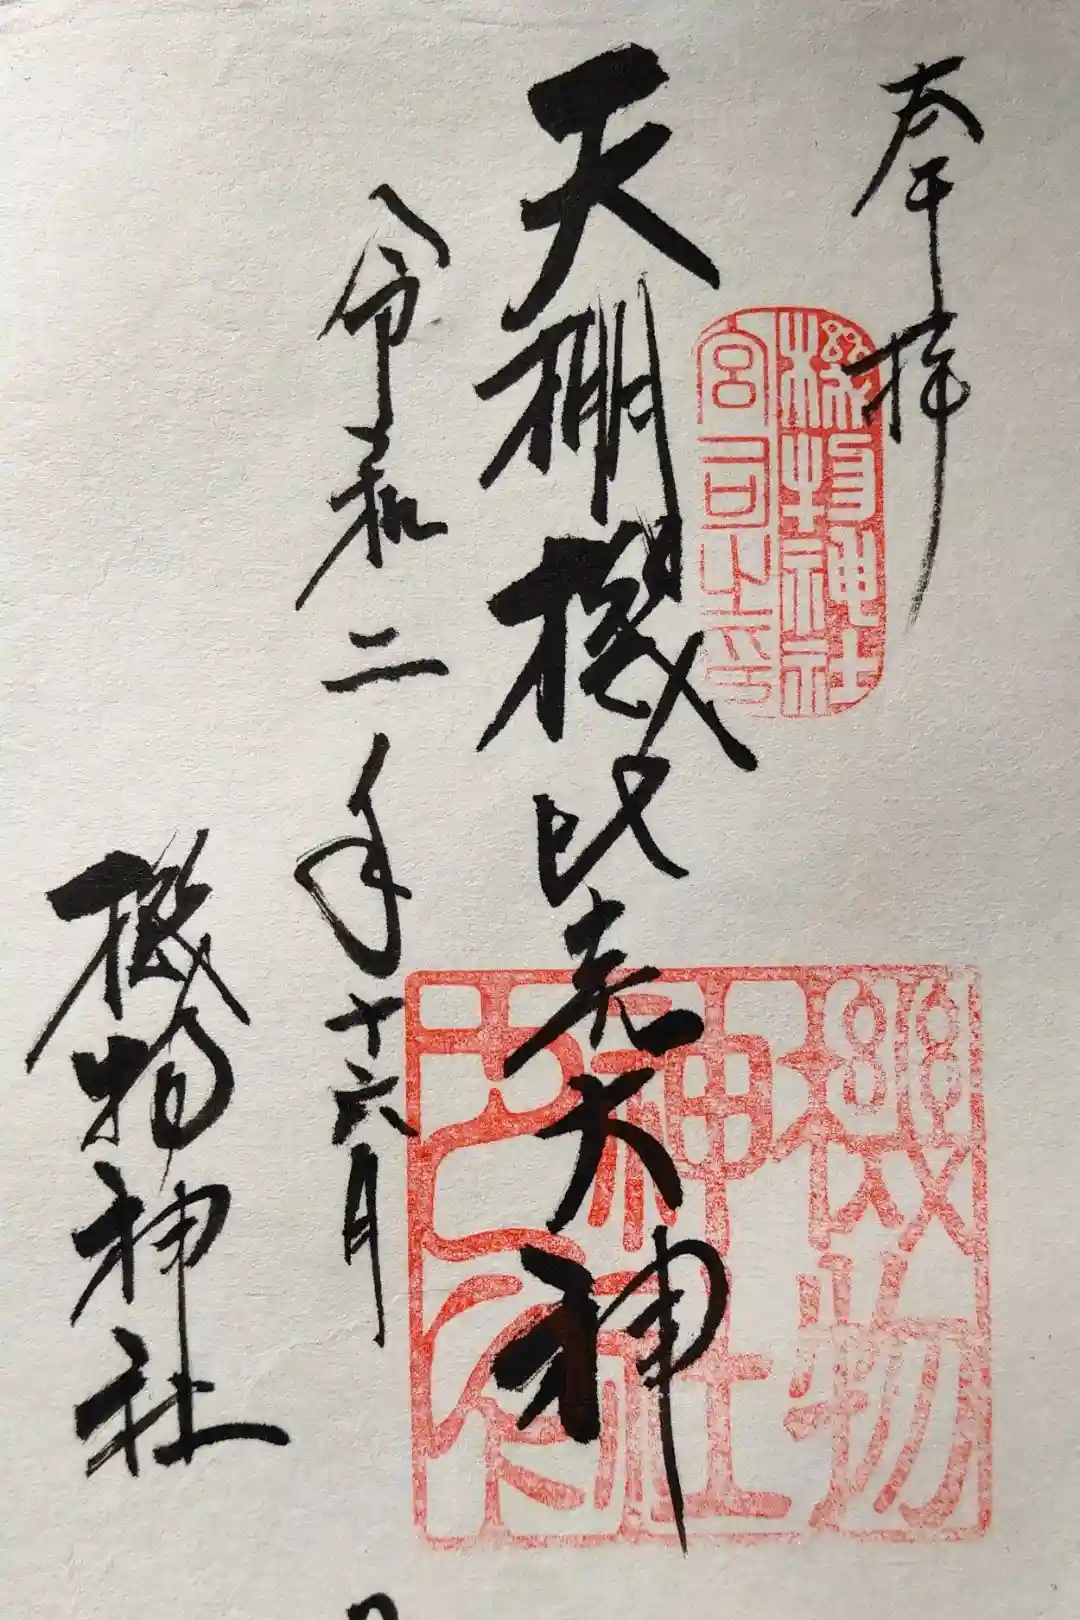 奉拝
機物神社
宮司之印
天棚機比売大神
機物
神社
令和二年十六月
機物神社